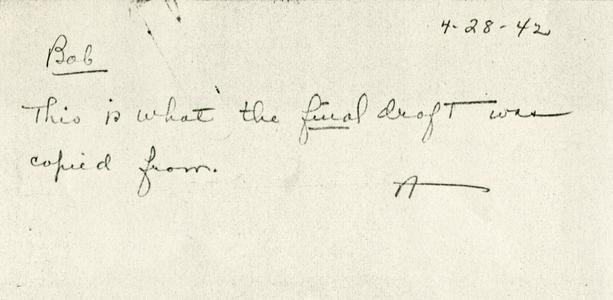 4-28-42
Bob
This is what the final draft was
copied from.